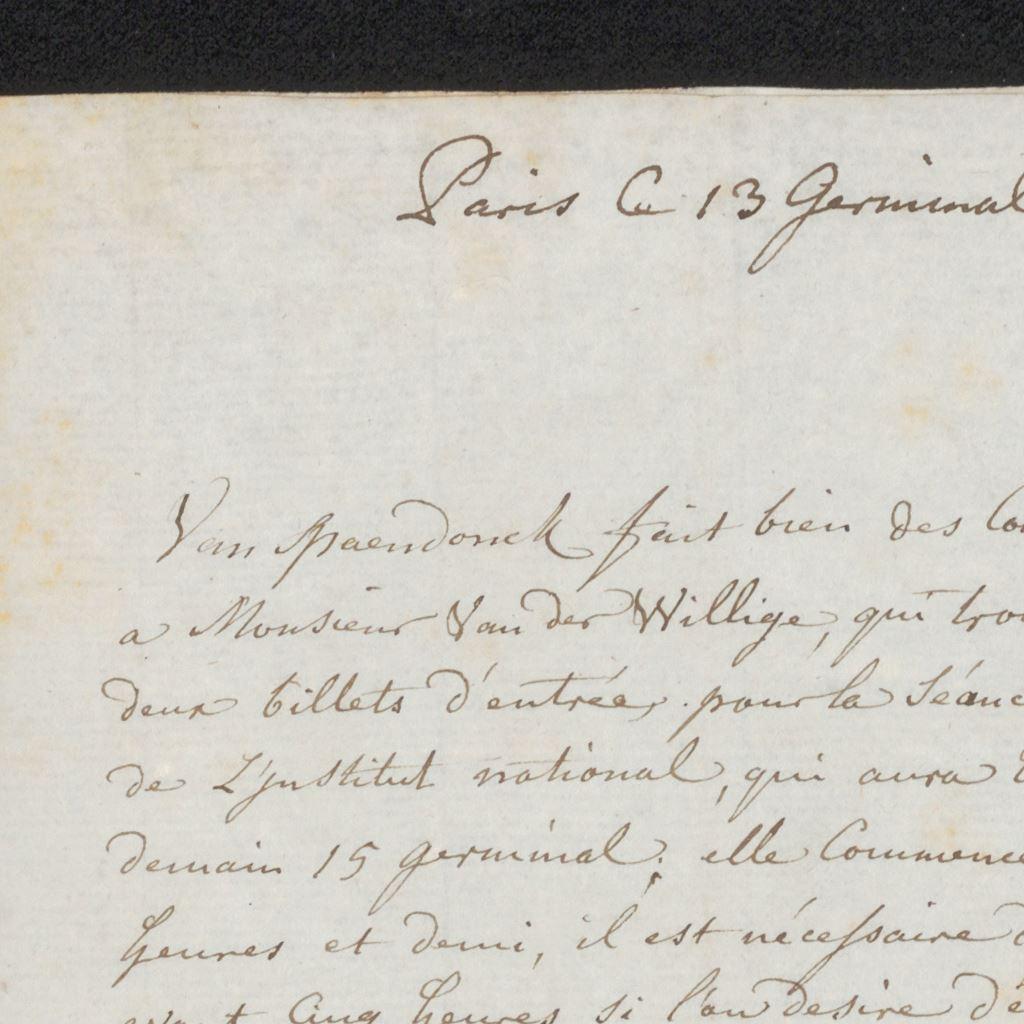 Paris Ce 13 Germinal
Van Spaendonck fait bien des Co
a Monsieur Van der Willige, qui trou
deux billets d'entrée, pour la Séanc
de L'Jnstitut national, qui aura
demain 15 germinal; elle Commence
heures et demi, il est nécessaire d
avant Cinq heures si l'on desire d'é